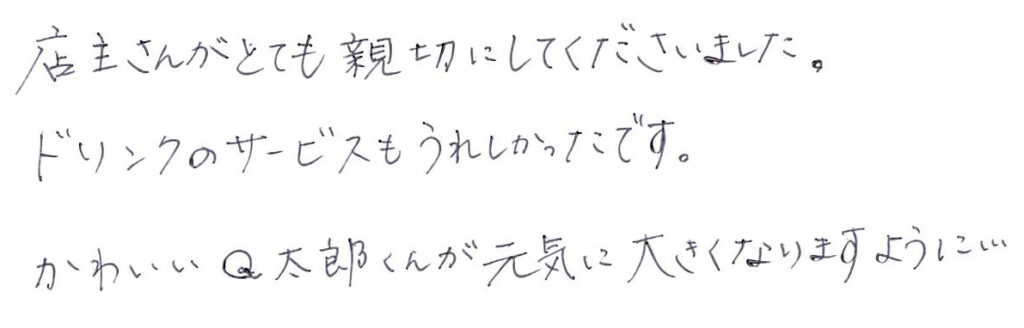 店主さんがとても親切にしてくださいました。
ドリンクのサービスもうれしかったです。
かわいいQ太郎くんが元気に大きくなりますように…